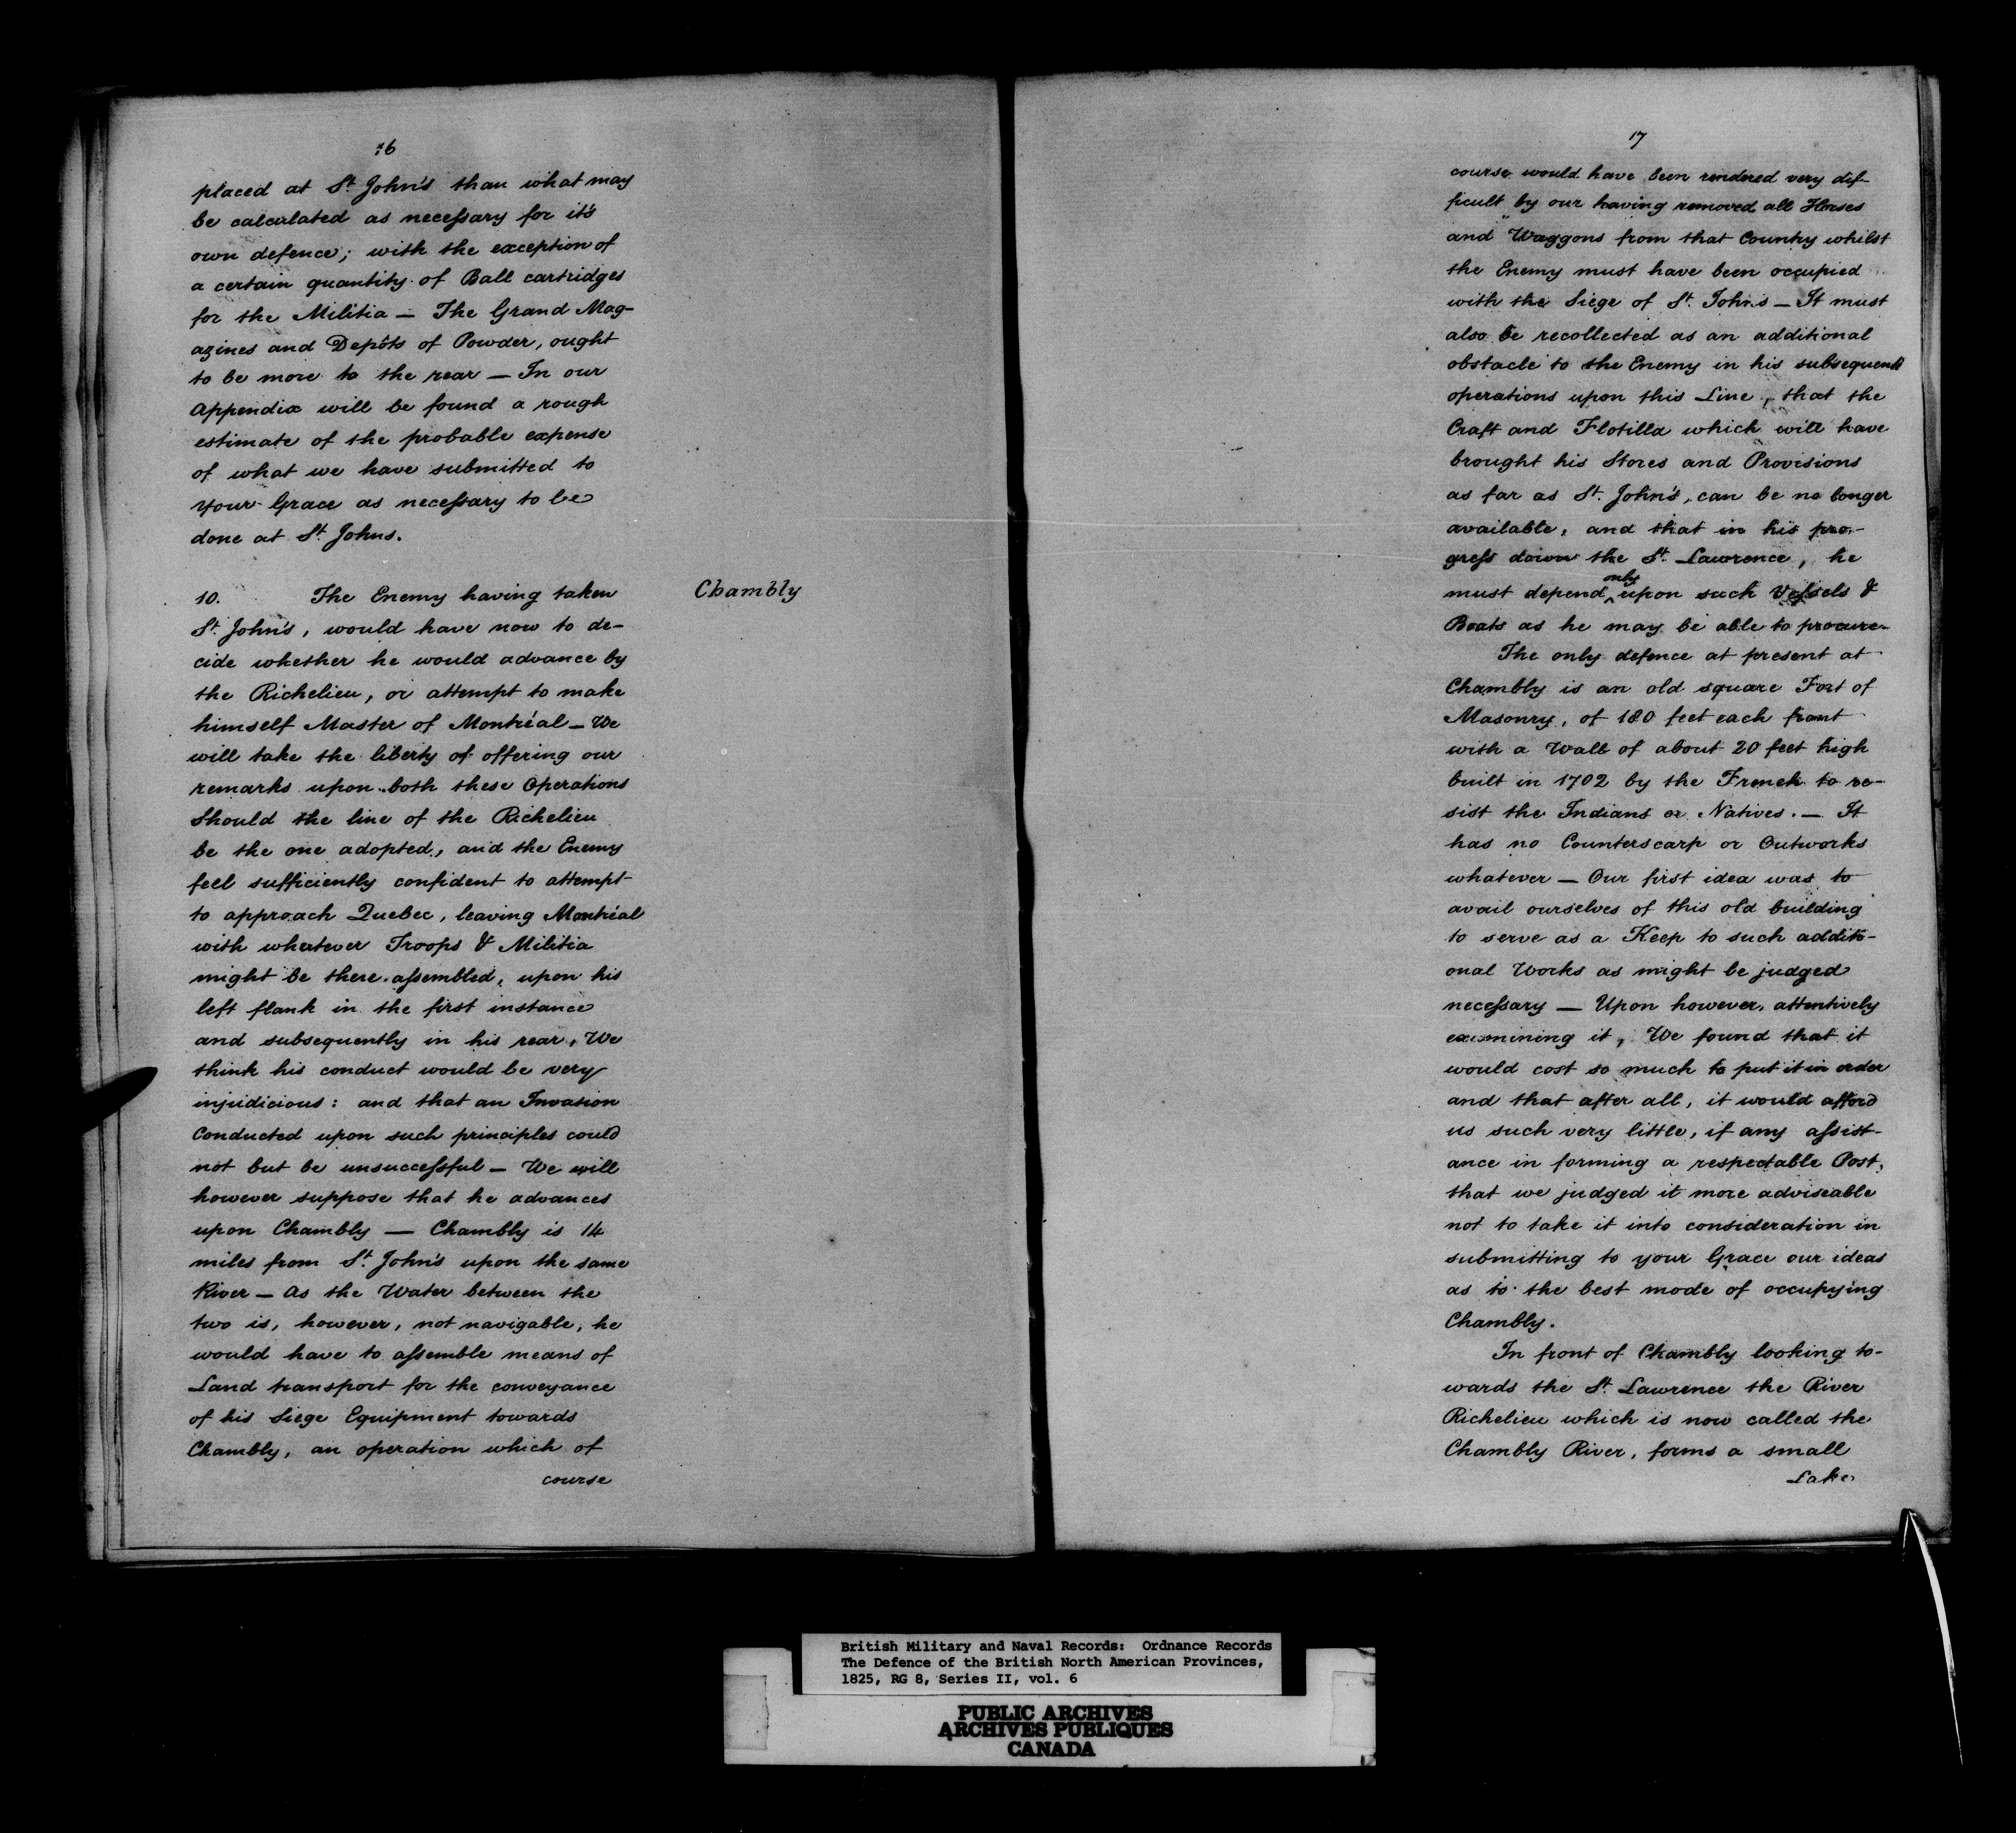 16
placed at St. John's than what may
be calculated as necessary for it's
own defence; with the exception of
a certain quantity of Ball cartridges
for the Militia — The Grand Mag-
azines and Depôts of Powder, ought
to be more to the rear — In our
Appendix will be found a rough
estimate of the probable expense
of what we have submitted to
Your Grace as necessary to be
done at St. Johns.
10. The Enemy having taken
Chambly
St. John's, would have now to de-
cide whether he would advance by
the Richelieu, or attempt to make
himself Master of Montréal — We
will take the liberty of offering our
remarks upon both these Operations
Should the line of the Richelieu
be the one adopted, and the Enemy
feel sufficiently confident to attempt
to approach Quebec, leaving Montréal
with whatever Troops & Militia
might be there assembled, upon his
left flank in the first instance
and subsequently in his rear, We
think his conduct would be very
injudicious: and that an Invasion
Conducted upon such principles could
not but be unsuccessful — We will
however suppose that he advances
upon Chambly — Chambly is 14
miles from St. John's upon the same
River — As the Water between the
two is, however, not navigable, he
would have to assemble means of
Land transport for the conveyance
of his Siege Equipment towards
Chambly, an operation which of
course
17
course would have been rendered very dif-
ficult by our having removed all Horses
and Waggons from that Country whilst
the Enemy must have been occupied
with the Siege of St. John's — It must
also be recollected as an additional
obstacle to the Enemy in his subsequent
operations upon this Line, that the
Craft and Flotilla which will have
brought his Stores and Provisions
as far as St. John's, can be no longer
available, and that in his pro-
gress down the St. Lawrence, he
must depend only upon such Vessels &
Boats as he may be able to procure.
The only defence at present at
Chambly is an old square Fort of
Masonry, of 180 feet each front
with a Wall of about 20 feet high
built in 1702 by the French to re-
sist the Indians or Natives. — It
has no Counterscarp or Outworks
whatever — Our first idea was to
avail ourselves of this old building
to serve as a Keep to such additi-
onal Works as might be judged
necessary — Upon however, attentively
examining it, We found that it
would cost so much to put it in order
and that after all, it would afford
us such very little, if any assist-
ance in forming a respectable Post,
that we judged it more adviseable
not to take it into consideration in
submitting to your Grace our ideas
as to the best mode of occupying
Chambly.
In front of Chambly looking to-
wards the St. Lawrence the River
Richelieu which is now called the
Chambly River, forms a small
Lake
British Military and Naval Records: Ordnance Records
The Defence of the British North American Provinces,
1825, RG 8, Series II, vol. 6
PUBLIC ARCHIVES
ARCHIVES PUBLIQUES
CANADA